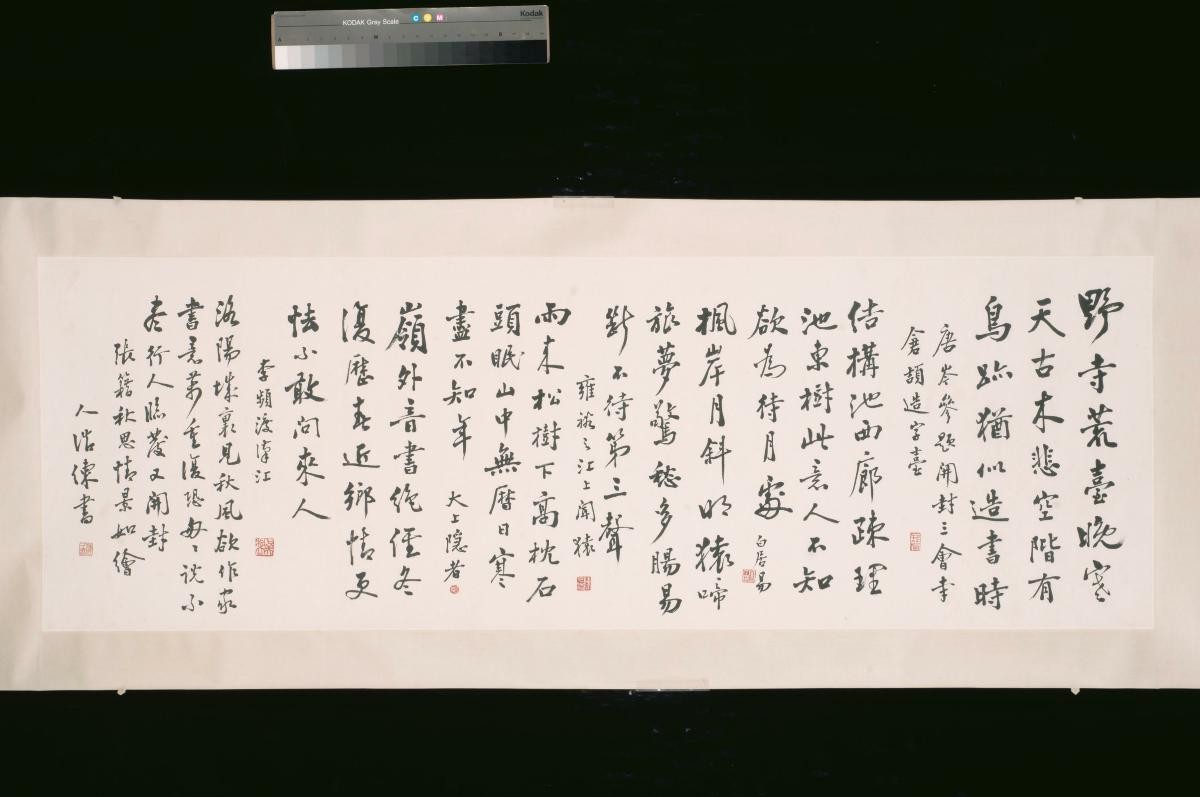 KODAK Gray Scale
C Y M
Kodak
A M B
野寺荒臺晚寒
天古木悲空階有
鳥跡猶似造書時
唐岑參題開封三會寺
倉頡造字臺
結構池西廊疎理
池東樹此意人不知
欲為待月處
白居易
楓岸月斜明猿啼
旅夢驚愁多腸易
斷不待第三聲
雍裕之江上聞猿
雨来松樹下高枕石
頭眠山中無曆日寒
盡不知年
大上隱者
嶺外音書絕經冬
復歷春近鄉情更
怯不敢問來人
李頻渡漢江
洛陽城裏見秋風欲作家
書意萬重復恐匆匆說不
盡行人臨發又開封
張籍秋思情景如繪
人浩書